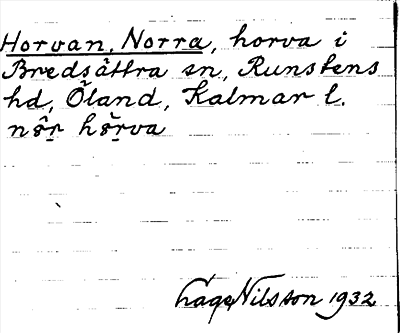 Horvan, Norra, horva i
Bredsättra sn, Runstens
hd, Öland, Kalmar l.
nŏ̂r hŏ̀rva
Nilsson 1932